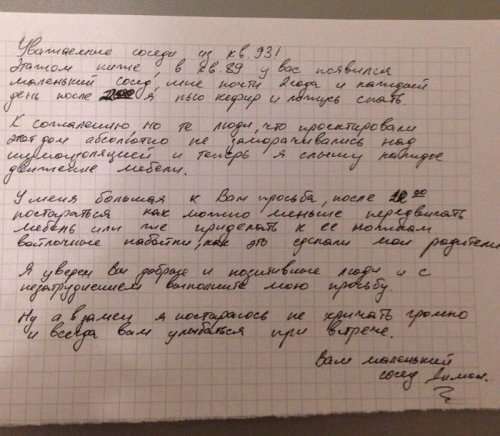 Уважаемые соседи из кв. 93!
Этажом ниже, в кв. 89 у вас появился
маленький сосед, мне почти 2 года и каждый
день после я пью кефир и ложусь спать
К сожалению, но те люди, что проектировали
этот дом абсолютно не заморачивались над
шумоизоляцией и теперь я слышу каждое
движение мебели.
У меня большая к Вам просьба, после
постараться как можно меньше передвигать
мебель или же приделать к ее ножкам
войлочные набойки, как это сделали мои родители
Я уверен Вы добрые и позитивные люди и с
незатруднением выполните мою просьбу
Ну а взамен я постараюсь не кричать громко
и всегда вам улыбаться при встрече.
Ваш маленький
сосед Димон.